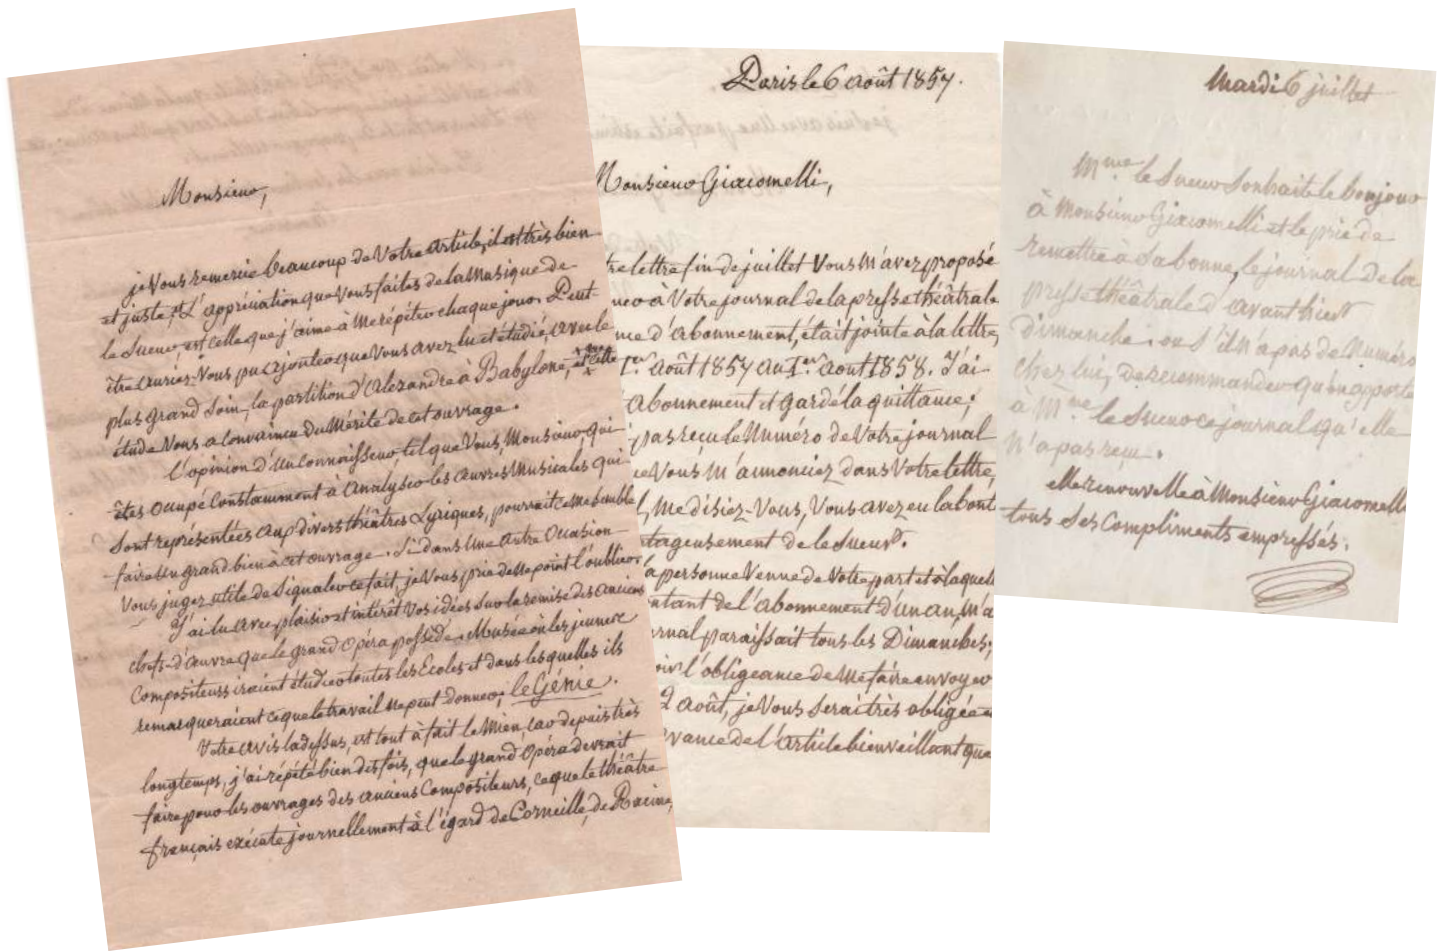 Monsieur,
je Vous remercie beaucoup de Votre Article, il est très bien
et juste, & L'appréciation que Vous faites de la Musique de
le Sueur, est celle que j'aime à Me répéter chaque jour. Peut-
être auriez-Vous pu ajouter que Vous avez lu et étudié, avec le
plus grand Soin, la partition d'Alexandre à Babylone, et cette
étude Vous a Convaincu du Mérite de cet ouvrage.
L'opinion d'un Connaisseur, tel que Vous, Monsieur, qui
êtes occupé Constamment à Analyser les œuvres Musicales qui
Sont représentées aux divers théâtres Lyriques, pourrait ce me Semble
faire un grand bien à cet ouvrage. Si dans Une Autre Occasion
Vous jugez utile de Signaler ce fait, je Vous prie de Ne point l'oublier.
J'ai lu avec plaisir et intérêt Vos idées Sur la remise des anciens
chefs-d'œuvre que le grand Opéra possède. Musée où les jeunes
Compositeurs iraient étudier toutes les Ecoles et dans les quelles ils
remarqueraient ce que le travail Ne peut donner, le Génie.
Votre avis là dessus, est tout à fait le Mien, car depuis très
longtemps, j'ai répété bien des fois, que le grand Opéra devrait
faire pour les ouvrages des anciens Compositeurs, ce que le théâtre
français exécute journellement à l'égard de Corneille, de Racine,
Paris le 6 Août 1857.
Monsieur Giacomelli,
tre lettre fin de juillet Vous M'avez proposé
à Votre journal de la presse théâtrale
d'Abonnement, était jointe à la lettre,
1er Août 1857 au 1er Août 1858. J'ai
Abonnement et gardé la quittance;
pas reçu le Numéro de Votre journal
Vous M'annonciez dans Votre lettre,
Me disiez-Vous, Vous avez eu la bont
tageusement de le Sueur.
la personne Venue de Votre part et à laquell
ntant de l'Abonnement d'un an, M'a
rnal paraissait tous les Dimanches;
oir l'obligeance de Me faire envoyer
2 Août, je Vous serai très obligée
vance de l'Article bienveillant que
Mardi 6 juillet
Mme le Sueur Souhaite le bonjour
à Monsieur Giacomelli et le prie de
remettre à Sa bonne, le journal De la
presse théâtrale d'avant hier
dimanche. ou S'il N'a pas de Numéro
chez lui, de recommander qu'on apporte
à Mme le Sueur ce journal qu'elle
N'a pas reçu.
elle renouvelle à Monsieur Giacomelli
tous Ses Compliments empressés.